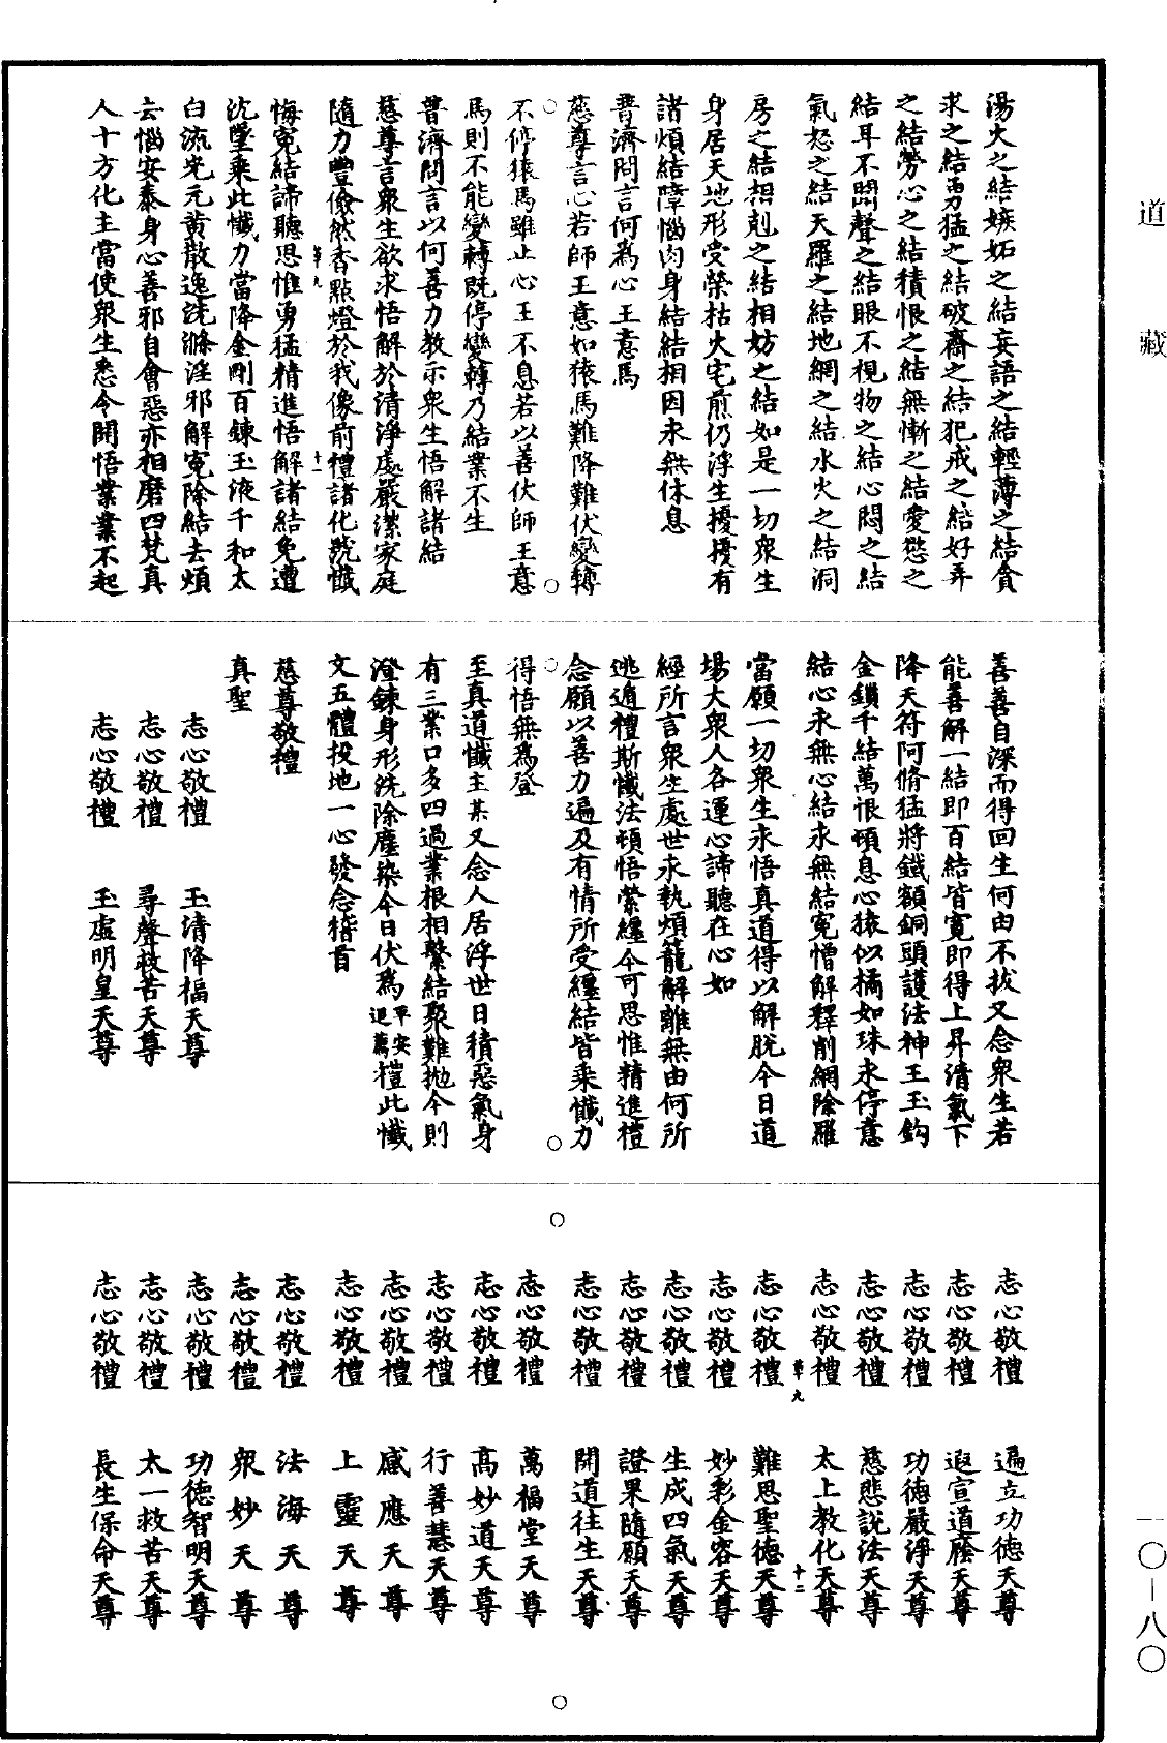 道藏
湯火之結嫉妬之結妄語之結輕薄之結貪
求之結勇猛之結破齋之結犯戒之結好弄
之結勞心之結積恨之結無慚之結愛慾之
結耳不聞聲之結眼不視物之結心悶之結
氣怒之結天羅之結地網之結水火之結洞
房之結相剋之結相妨之結如是一切衆生
身居天地形受榮枯火宅煎仍浮生擾擾有
諸煩結障惱肉身結結相因永無休息
普濟問言何為心王意馬
慈尊言心若師王意如猿馬難降難伏變轉
不停猿馬雖止心王不息若以善伏師王意
馬則不能變轉既停變轉乃結業不生
普濟問言以何善力教示衆生悟解諸結
慈尊言衆生欲求悟解於清淨處嚴潔家庭
隨力豐儉然香點燈於我像前禮諸化號懺
悔冤結諦聽思惟勇猛精進悟解諸結免遭
沈墜乘此懺力當降金剛百鍊玉液千和太
白流光元黄散逸洗滌淫邪解冤除結去煩
去惱安泰身心善邪自會惡亦相磨四梵真
人十方化主當使衆生悉令開悟業業不起
善善自深而得回生何由不拔又念衆生若
能善解一結即百結皆寛即得上昇清氣下
降天符阿脩猛將鐵額銅頭護法神王玉鈎
金鎖千結萬恨頓息心猿似橘如珠永停意
結心永無心結永無結冤憎解釋削網除羅
當願一切衆生永悟真道得以解脫今日道
場大衆人各運心諦聽在心如
經所言衆生處世永執煩籠解離無由何所
逃遁禮斯懺法頓悟縈纏今可思惟精進禮
念願以善力遍及有情所受纏結皆乘懺力
得悟無為登
至真道懺主某又念人居浮世日積惡氣身
有三業口多四過業根相繫結聚難抛今則
澄鍊身形洗除塵染今日伏為平安退薦禮此懺
文五體投地一心發念稽首
慈尊敬禮
真聖
志心敬禮　玉清降福天尊
志心敬禮　尋聲救苦天尊
志心敬禮　玉虛明皇天尊
志心敬禮　遍立功德天尊
志心敬禮　遐宣道蔭天尊
志心敬禮　功德嚴淨天尊
志心敬禮　慈悲説法天尊
志心敬禮　太上教化天尊
志心敬禮　難思聖德天尊
志心敬禮　妙彩金容天尊
志心敬禮　生成四氣天尊
志心敬禮　證果隨願天尊
志心敬禮　開道往生天尊
志心敬禮　萬福堂天尊
志心敬禮　高妙道天尊
志心敬禮　行善慧天尊
志心敬禮　感應天尊
志心敬禮　上靈天尊
志心敬禮　法海天尊
志心敬禮　衆妙天尊
志心敬禮　功德智明天尊
志心敬禮　太一救苦天尊
志心敬禮　長生保命天尊
一〇—八〇